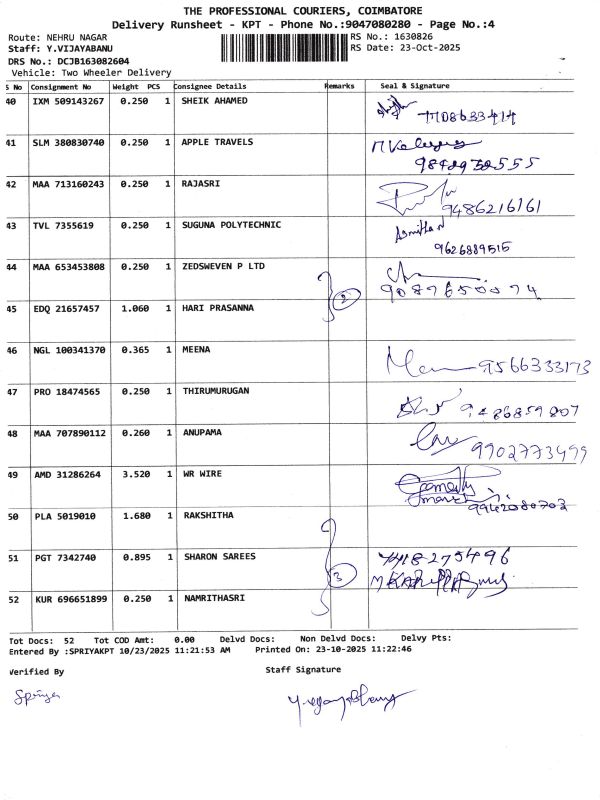 THE PROFESSIONAL COURIERS, COIMBATORE
Delivery Runsheet - KPT - Phone No.:9047080280 - Page No.:4
Route: NEHRU NAGAR
RS No.: 1630826
Staff: Y.VIJAYABANU
RS Date: 23-Oct-2025
DRS No.: DCJB163082604
Vehicle: Two Wheeler Delivery
S No Consignment No Weight PCS Consignee Details Remarks Seal & Signature
40 IXM 509143267 0.250 1 SHEIK AHAMED 7708633414
41 SLM 380830740 0.250 1 APPLE TRAVELS
42 MAA 713160243 0.250 1 RAJASRI 9486216161
43 TVL 7355619 0.250 1 SUGUNA POLYTECHNIC
9626889515
44 MAA 653453808 0.250 1 ZEDSWEVEN P LTD
45 EDQ 21657457 1.060 1 HARI PRASANNA 2
46 NGL 100341370 0.365 1 MEENA 9566333173
47 PRO 18474565 0.250 1 THIRUMURUGAN 9486859807
48 MAA 707890112 0.260 1 ANUPAMA 9902773499
49 AMD 31286264 3.520 1 WR WIRE
9942080702
50 PLA 5019010 1.680 1 RAKSHITHA
51 PGT 7342740 0.895 1 SHARON SAREES
3
52 KUR 696651899 0.250 1 NAMRITHASRI
Tot Docs: 52 Tot COD Amt: 0.00 Delvd Docs: Non Delvd Docs: Delvy Pts:
Entered By :SPRIYAKPT 10/23/2025 11:21:53 AM Printed On: 23-10-2025 11:22:46
Verified By Staff Signature
Spriya